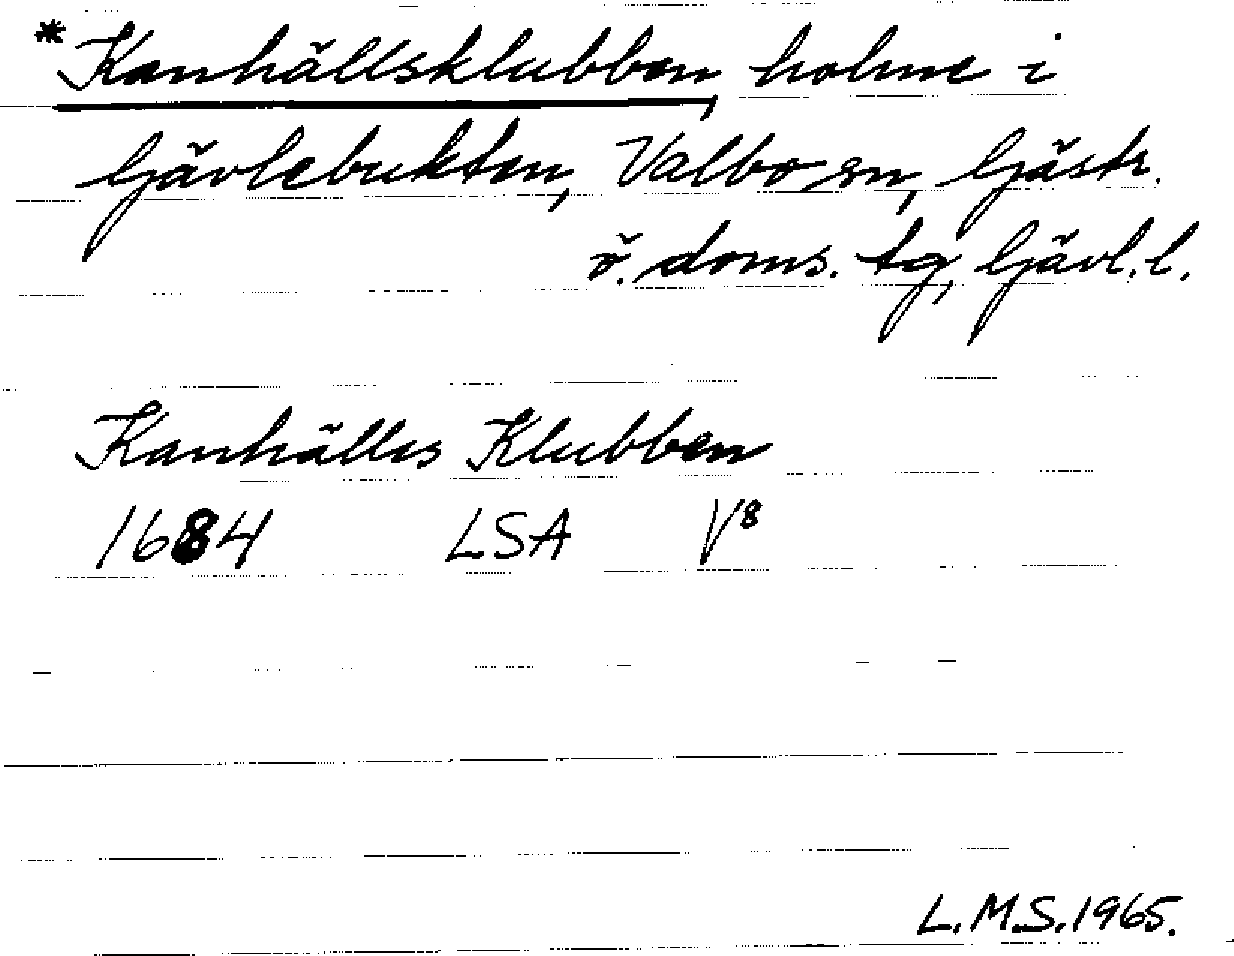 *Kanhällsklubben, holme i
Gävlebukten, Valbo sn, Gästr.
ö. doms. tg, Gävl. l.
Kanhälls Klubben
1684 LSA V8
L.M.S. 1965.